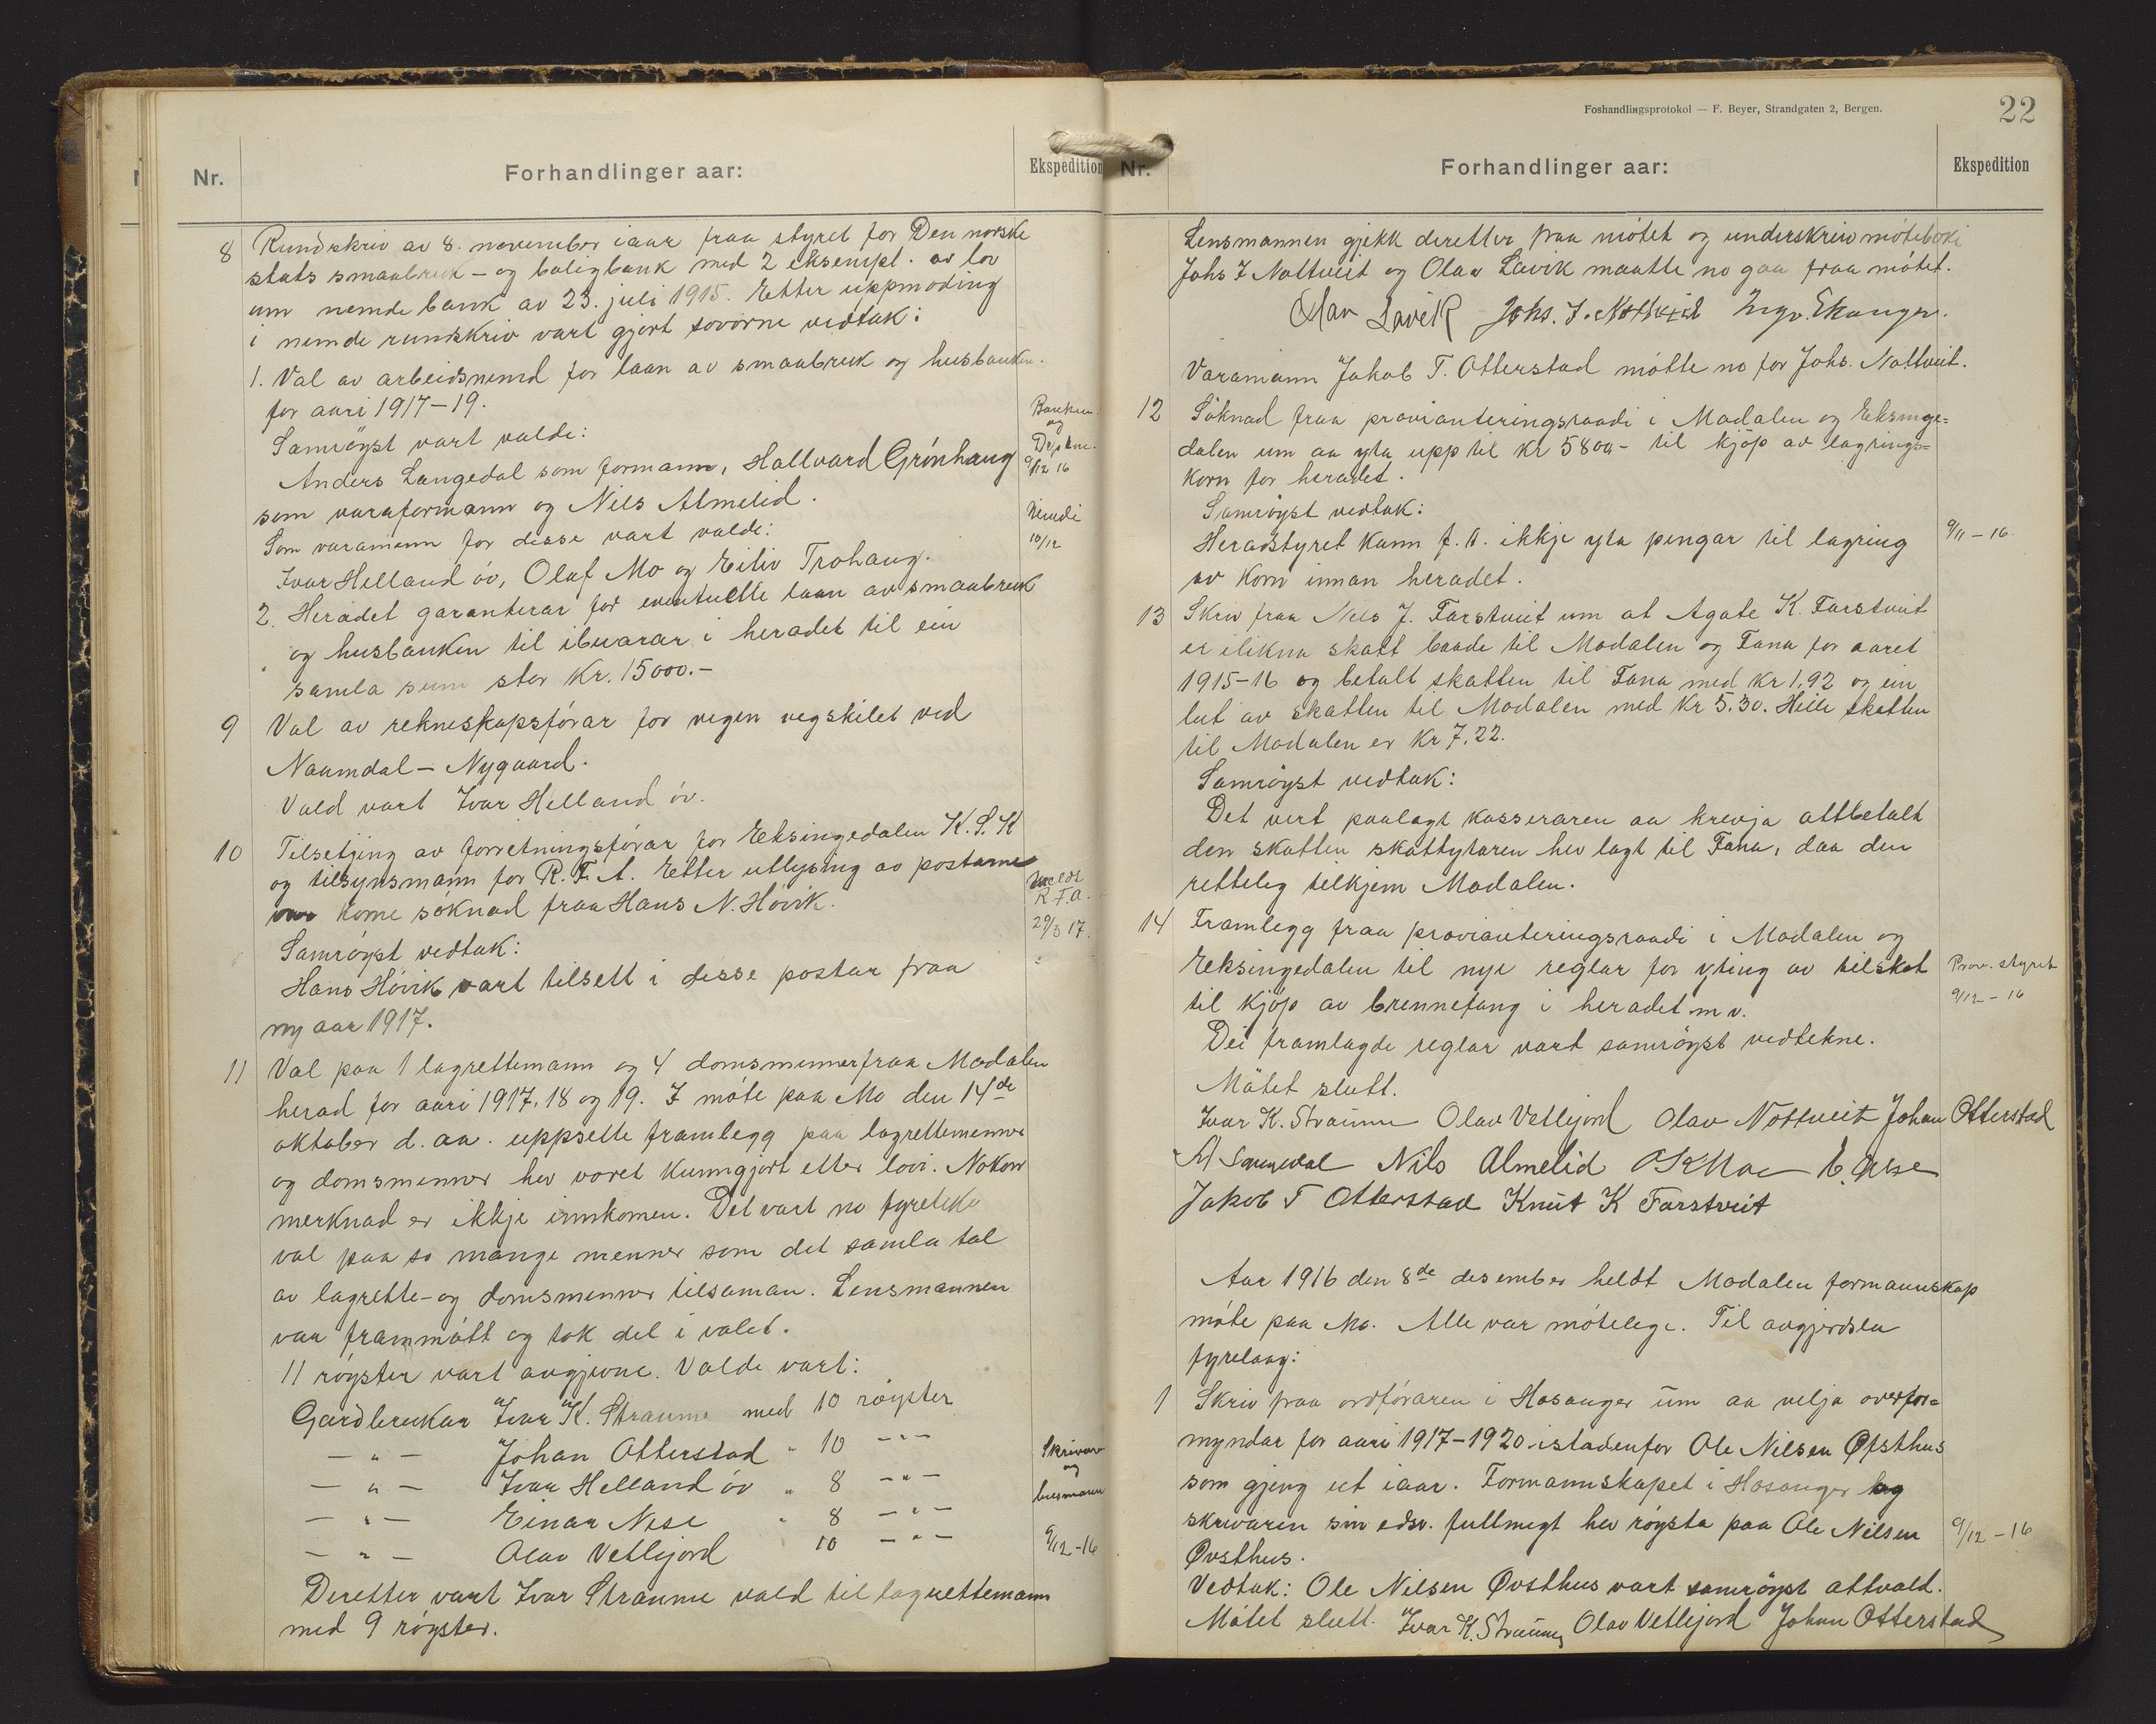 Nr.
Forhandlinger aar:
Ekspedition
8 Rundskriv av 8. november iaar fraa styret for Den norske
stats smaabruk- og boligbank med 2 eksempl. av lov
um nemde bank av 23. juli 1915. Etter uppmoding
i nemde rundskriv vart gjort sovórne vedtak:
1. Val av arbeidsnemd for laan av smaabruk og husbanken.
for aari 1917-19.
Samröyst vart valde:
Anders Langedal som formann, Hallvard Grónhaug
som varaformann og Nils Almelid.
Som varamenn for desse vart valde:
Ivar Helland óv, Olaf Mo og Eiliv Trohaug.
Banken
og
9/12 16
Nemdi
10/12
2. Heradet garanterar for eventuelle laan av smaabruk
og husbanken til ibuarar i heradet til ein
samla sum stor Kr. 15000.-
9 Val av rekneskapsfórar for vegen vegskilet ved
Naamdal - Nygaard.
Vald vart Ivar Helland óv.
10 Tilsetjing av forretningsfórar for Eksingedalen K.S.K
og tilsynsmann for R.F.A. Etter utlysing av postarne
kome sóknad fraa Hans N. Hóvik.
Samröyst vedtak:
Hans Hóvik vart tilsett i disse postar fraa
ny aar 1917.
Meldt
R.F.a.
29/3 17.
11 Val paa 1 lagrettemann og 4 domsmenner fraa Modalen
herad for aari 1917, 18 og 19. I móte paa Mo den 14de
oktober d. aa. uppsette framlegg paa lagrettemenner
og domsmenner hev voret kunngjort etter lovi. Nokon
merknad er ikkje innkomen. Det vart no fyreteke
val paa so mange menner som det samla tal
av lagrette- og domsmenner tilsaman. Lensmannen
var frammótt og tok del i valet.
11 röyster vart avgjevne. Valde vart:
Gardbrukar Ivar K. Straume med 10 röyster
- " - Johan Otterstad " 10 - " -
- " - Ivar Helland óv " 8 - " -
- " - Einar Nese " 8 - " -
- " - Olav Vetlejord 10 - " -
Skrivar
og
lensmann
9/12-16
Deretter vart Ivar Straume vald til lagrettemann
med 9 röyster.
Foshandlingsprotokol — F. Beyer, Strandgaten 2, Bergen.
22
Nr.
Forhandlinger aar:
Ekspedition
Lensmannen gjekk deretter fraa mótet og underskreiv móteboki
Johs I Nottveit og Olav Lavik maatte no gaa fraa mótet.
Olav Lavik Johs. I. Nottveit Ingv. Ekanger.
Varamann Jakob T. Otterstad mótte no for Johs. Nottveit.
12 Söknad fraa provianteringsraadi i Modalen og Eksinge=
dalen um aa yta upp til kr 5800- til kjöp av lagrings=
korn for heradet.
Samröyst vedtak:
Heradstyret kann f.t. ikkje yta pengar til lagring
av korn innan heradet.
9/11-16.
13 Skriv fraa Nils J. Farstveit um at Agate K. Farstveit
er ilikna skatt baade til Modalen og Fana for aaret
1915-16 og betalt skatten til Fana med kr 1,92 og ein
lut av skatten til Modalen med kr 5.30. Heile skatten
til Modalen er kr 7,22.
Samröyst vedtak:
Det vert paalagt kasseraren aa krevja attbetalt
den skatten skattytaren hev lagt til Fana, daa den
retteleg tilkjem Modalen.
14 Framlegg fraa provianteringsraadi i Modalen og
Eksingedalen til nye reglar for yting av tilskot
til kjöp av brennefang i heradet m v.
Dei framlagde reglar vart samröyst vedtekne.
Prov. styret
9/12-16
Mötet slutt.
Ivar K. Straume Olav Vetlejord Olav Nottveit Johan Otterstad
A Langedal Nils Almelid O K Moe E. Nese
Jakob T Otterstad Knut K Farstveit
Aar 1916 den 8de desember heldt Modalen formannskap
móte paa Mo. Alle var mótelege. Til avgjerdsla
fyrelaag:
1 Skriv fraa ordfóraren i Hosanger um aa velja overfor=
myndar for aari 1917-1920 istadenfor Ole Nilsen Øfsthus
som gjeng ut iaar. Formannskapet i Hosanger og
skrivaren sin edsv. fullmegt hev róysta paa Ole Nilsen
Øvsthus.
9/12-16
Vedtak: Ole Nilsen Øvsthus vart samröyst attvald.
Mótet slutt. Ivar K. Straume Olav Vetlejord Johan Otterstad